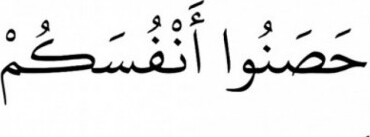 حَصَنُوا أَنْفُسَكُمْ